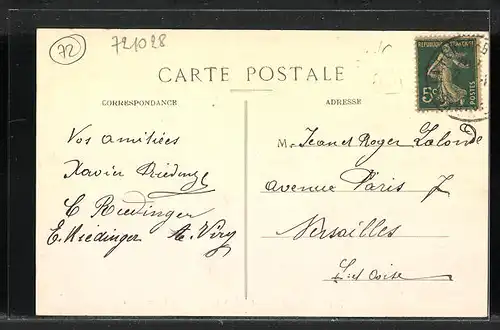 72
721028
CARTE POSTALE
CORRESPONDANCE
ADRESSE
REPUBLIQUE FRANÇAISE
5c
POSTES
Vos amitiées
Xavier
C Riedinger
E. Riedinger A. Viry
M. Jean et Roger Lalonde
avenue Paris 7
Versailles
S. et Oise